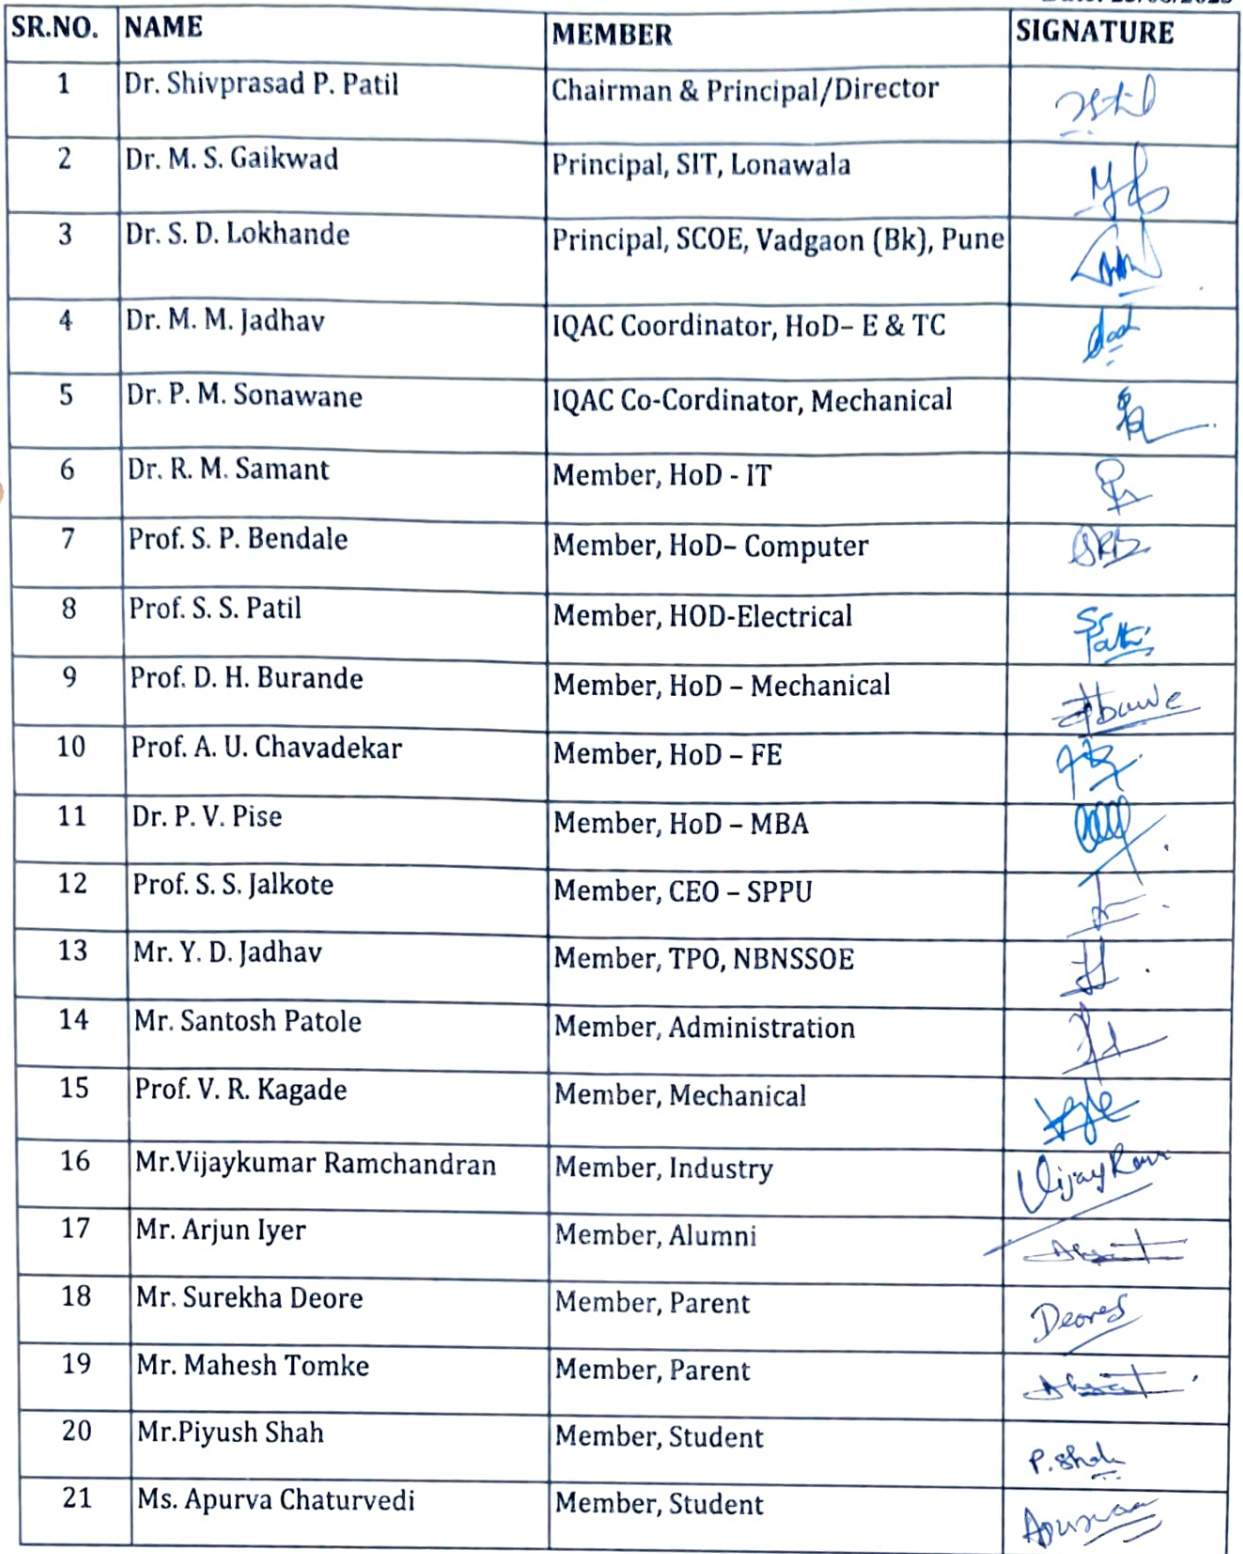 SR.NO. NAME MEMBER SIGNATURE
1 Dr. Shivprasad P. Patil Chairman & Principal/Director
2 Dr. M. S. Gaikwad Principal, SIT, Lonawala
3 Dr. S. D. Lokhande Principal, SCOE, Vadgaon (Bk), Pune
4 Dr. M. M. Jadhav IQAC Coordinator, HoD– E & TC
5 Dr. P. M. Sonawane IQAC Co-Cordinator, Mechanical
6 Dr. R. M. Samant Member, HoD - IT
7 Prof. S. P. Bendale Member, HoD– Computer
8 Prof. S. S. Patil Member, HOD-Electrical
9 Prof. D. H. Burande Member, HoD – Mechanical
10 Prof. A. U. Chavadekar Member, HoD – FE
11 Dr. P. V. Pise Member, HoD – MBA
12 Prof. S. S. Jalkote Member, CEO – SPPU
13 Mr. Y. D. Jadhav Member, TPO, NBNSSOE
14 Mr. Santosh Patole Member, Administration
15 Prof. V. R. Kagade Member, Mechanical
16 Mr.Vijaykumar Ramchandran Member, Industry
17 Mr. Arjun Iyer Member, Alumni
18 Mr. Surekha Deore Member, Parent
19 Mr. Mahesh Tomke Member, Parent
20 Mr.Piyush Shah Member, Student P.Shah
21 Ms. Apurva Chaturvedi Member, Student